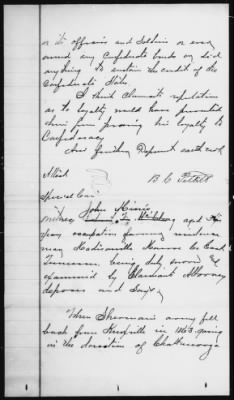 or its officers and Soldiers or ever
owned any Confederate bonds or did
anything to sustain the credit of the
Confederate States
I think Claimants reputation
as to loyalty would have prevented
him from proving his loyalty to
Confederacy
And further Deponent saith not
Attest
B. C.
Special Com
John
aged
years occupation farming residence
near Madisonville Monroe Co East
Tennessee, being duly sworn &
examined by Claimants Attorney
deposes and Says
When Shermans army fell
back from Knoxville in 1863 going
in the direction of Chattanooga